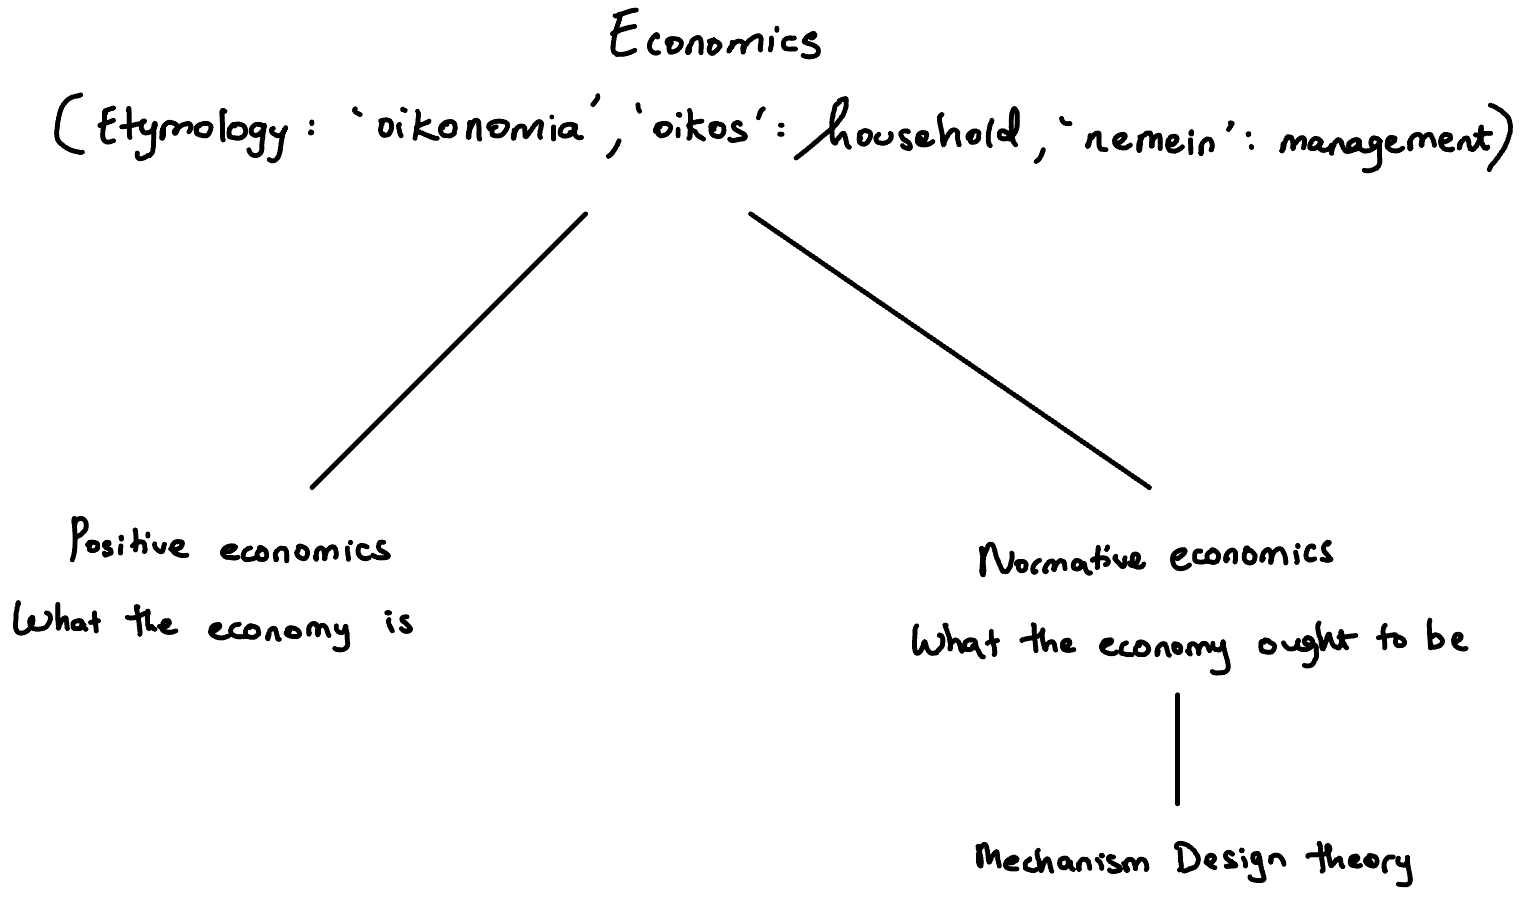 Economics
(Etymology : 'oikonomia', 'oikos': household, 'nemein': management)
Positive economics
What the economy is
Normative economics
What the economy ought to be
Mechanism Design theory